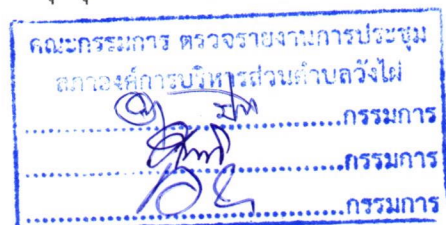 คณะกรรมการ ตรวจรายงานการประชุม
สภาองค์การบริหารส่วนตำบลวังไผ่
........................................กรรมการ
........................................กรรมการ
........................................กรรมการ